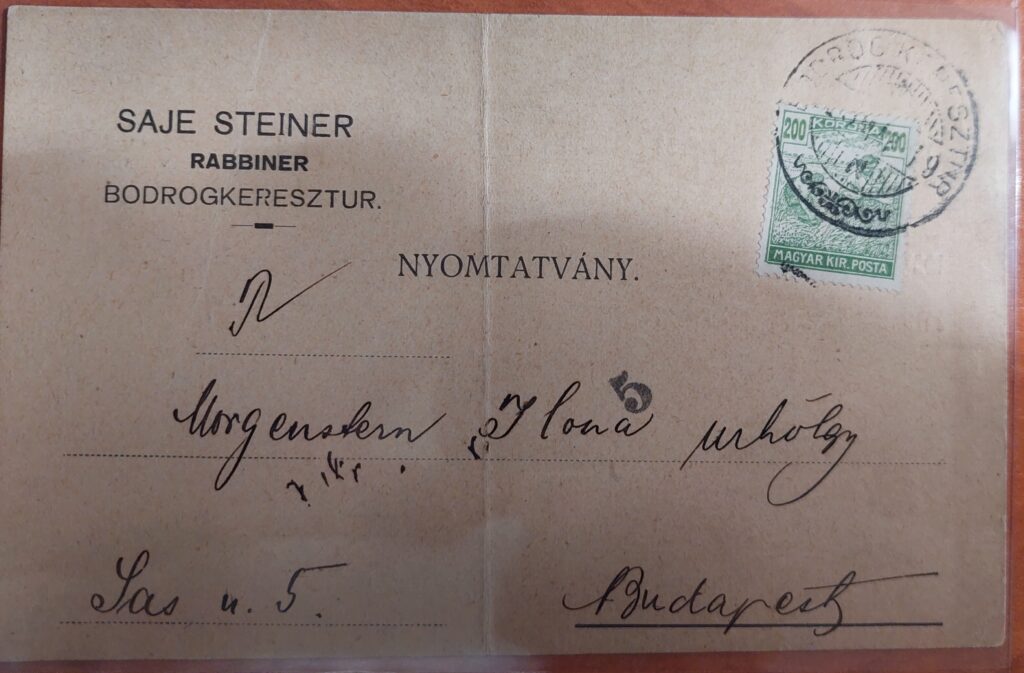 SAJE STEINER
RABBINER
BODROGKERESZTUR.
BODROGKERESZTUR
200 KORONA 200
MAGYAR KIR. POSTA
NYOMTATVÁNY.
5
Morgenstern Ilona urhölgy
Sas u. 5.
Budapest